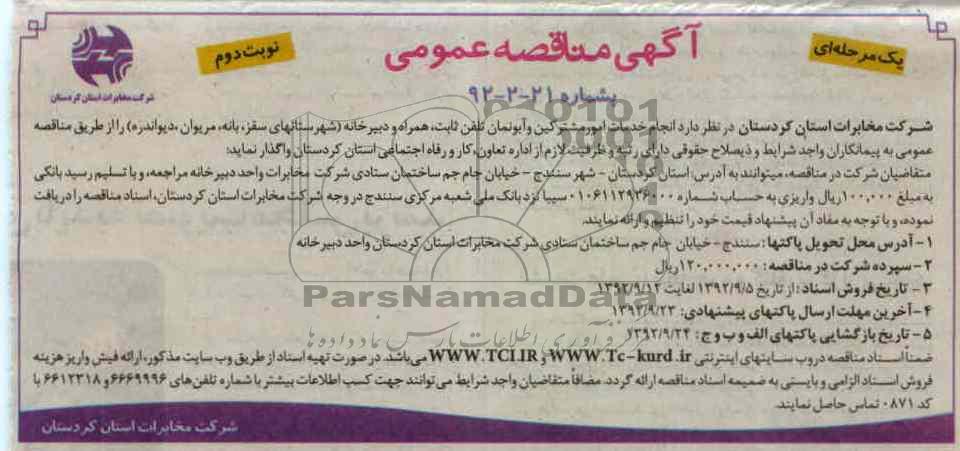 یک مرحله‌ای
آگهی مناقصه عمومی
نوبت دوم
شرکت مخابرات استان کردستان
بشماره ۲۱-۲-۹۲
شرکت مخابرات استان کردستان در نظر دارد انجام خدمات امور مشترکین وآبونمان تلفن ثابت، همراه و دبیرخانه (شهرستانهای سقز، بانه، مریوان ،دیواندره) را از طریق مناقصه
عمومی به پیمانکاران واجد شرایط و ذیصلاح حقوقی دارای رتبه و ظرفیت لازم از اداره تعاون، کار و رفاه اجتماعی استان کردستان واگذار نماید؛
متقاضیان شرکت در مناقصه، میتوانند به آدرس: استان کردستان - شهر سنندج - خیابان جام جم ساختمان ستادی شرکت مخابرات واحد دبیرخانه مراجعه، و با تسلیم رسید بانکی
به مبلغ ۱۰۰,۰۰۰ ریال واریزی به حساب شماره سیبا نزد بانک ملی شعبه مرکزی سنندج در وجه شرکت مخابرات استان کردستان، اسناد مناقصه را دریافت
نموده، و با توجه به مفاد آن پیشنهاد قیمت خود را تنظیم و ارائه نمایند.
۱- آدرس محل تحویل پاکتها: سنندج - خیابان جام جم ساختمان ستادی شرکت مخابرات استان کردستان واحد دبیرخانه
۲- سپرده شرکت در مناقصه: ۱۲۰,۰۰۰,۰۰۰ ریال
۳- تاریخ فروش اسناد: از تاریخ ۱۳۹۲/۹/۵ لغایت ۱۳۹۲/۹/۱۲
۴- آخرین مهلت ارسال پاکتهای پیشنهادی: ۱۳۹۲/۹/۲۳
۵- تاریخ بازگشایی پاکتهای الف و ب و ج: ۱۳۹۲/۹/۲۴
ضمناً اسناد مناقصه در وب سایتهای اینترنتی WWW.Tc-kurd.ir و WWW.TCI.IR می‌باشد. در صورت تهیه اسناد از طریق وب سایت مذکور، ارائه فیش واریز هزینه
فروش اسناد الزامی و بایستی به ضمیمه اسناد مناقصه ارائه گردد. مضافاً متقاضیان واجد شرایط می‌توانند جهت کسب اطلاعات بیشتر با شماره تلفن‌های ۶۶۶۹۹۹۶ و ۶۶۱۲۳۱۸ با
کد ۰۸۷۱ تماس حاصل نمایند.
شرکت مخابرات استان کردستان
ParsNamadData
فرآوری اطلاعات پارس نماد داده‌ها